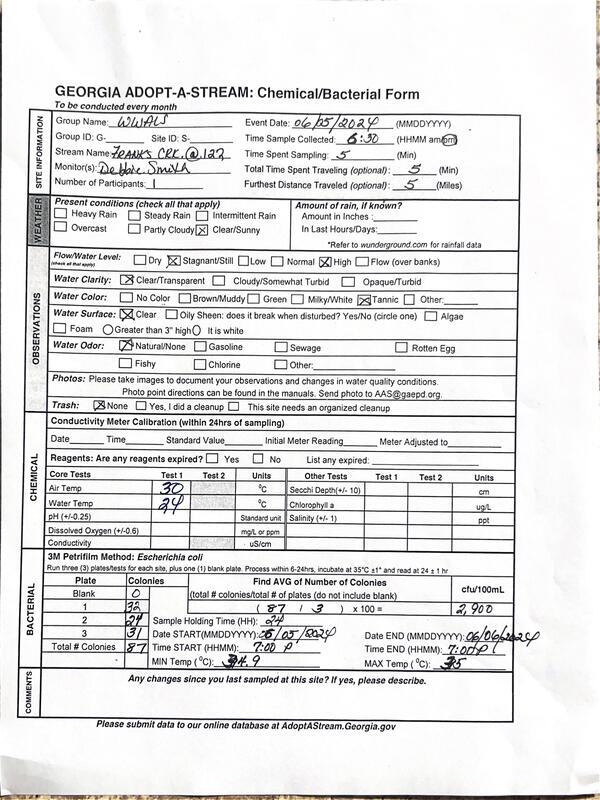 GEORGIA ADOPT-A-STREAM: Chemical/Bacterial Form
To be conducted every month
SITE INFORMATION
Group Name: WWALS Event Date: 06/05/2024 (MMDDYYYY)
Group ID: G- Site ID: S- Time Sample Collected: 6:30 (HHMM am/pm)
Stream Name: FRANKS CRK. @ 122 Time Spent Sampling: 5 (Min)
Monitor(s): Debbie Smith Total Time Spent Traveling (optional): 5 (Min)
Number of Participants: 1 Furthest Distance Traveled (optional): 5 (Miles)
WEATHER
Present conditions (check all that apply) Amount of rain, if known?
Heavy Rain Steady Rain Intermittent Rain Amount in Inches :
Overcast Partly Cloudy Clear/Sunny In Last Hours/Days:
*Refer to wunderground.com for rainfall data
OBSERVATIONS
Flow/Water Level: Dry Stagnant/Still Low Normal High Flow (over banks)
(check all that apply)
Water Clarity: Clear/Transparent Cloudy/Somewhat Turbid Opaque/Turbid
Water Color: No Color Brown/Muddy Green Milky/White Tannic Other:
Water Surface: Clear Oily Sheen: does it break when disturbed? Yes/No (circle one) Algae
Foam Greater than 3" high It is white
Water Odor: Natural/None Gasoline Sewage Rotten Egg
Fishy Chlorine Other:
Photos: Please take images to document your observations and changes in water quality conditions.
Photo point directions can be found in the manuals. Send photo to AAS@gaepd.org.
Trash: None Yes, I did a cleanup This site needs an organized cleanup
CHEMICAL
Conductivity Meter Calibration (within 24hrs of sampling)
Date Time Standard Value Initial Meter Reading Meter Adjusted to
Reagents: Are any reagents expired? Yes No List any expired:
Core Tests Test 1 Test 2 Units Other Tests Test 1 Test 2 Units
Air Temp 30 °C Secchi Depth(+/- 10) cm
Water Temp 24 °C Chlorophyll a ug/L
pH (+/-0.25) Standard unit Salinity (+/- 1) ppt
Dissolved Oxygen (+/-0.6) mg/L or ppm
Conductivity uS/cm
BACTERIAL
3M Petrifilm Method: Escherichia coli
Run three (3) plates/tests for each site, plus one (1) blank plate. Process within 6-24hrs, incubate at 35°C ±1° and read at 24 ± 1 hr
Plate Colonies Find AVG of Number of Colonies cfu/100mL
Blank 0 (total # colonies/total # of plates (do not include blank)
1 32 ( 87 / 3 ) x 100 = 2,900
2 24 Sample Holding Time (HH): 24
3 31 Date START(MMDDYYYY): 06/05/2024 Date END (MMDDYYYY): 06/06/2024
Total # Colonies 87 Time START (HHMM): 7:00 P Time END (HHMM): 7:00 P
MIN Temp (°C): 34.9 MAX Temp (°C): 35
COMMENTS
Any changes since you last sampled at this site? If yes, please describe.
Please submit data to our online database at AdoptAStream.Georgia.gov